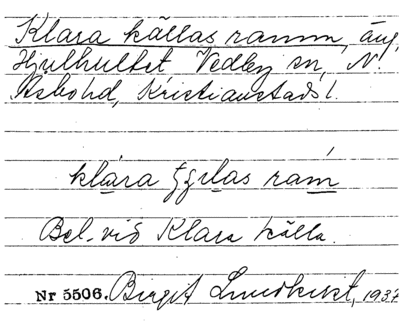 Klara källas ramm, äng,
Hjulhultet Vedby sn, N.
Åsbo hd, Kristianstads l.
klára ramm
Bel. vid Klara källa.
Nr 5506. Birgit Lundkvist, 1937